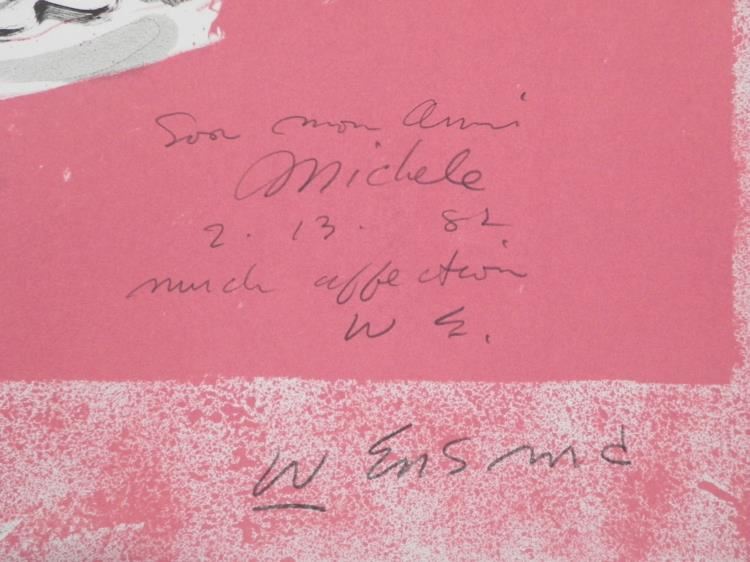 mon Ami
Michele
2. 13. 82
much affection
W E.
W